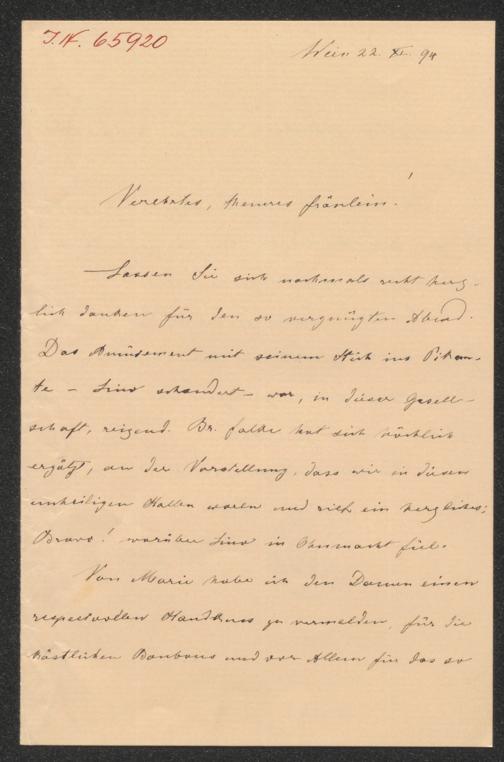 J.N. 65920
Wien 22. XI. 94
Verehrtes, theures Fräulein!
Lassen Sie sich nochmals recht herz-
lich danken für den so vergnügten Abend.
Das Amüsement mit seinem Stich ins Pikan-
te - Lino schaudert - war, in dieser Gesell-
schaft, reizend. Br. Falke hat sich höchlich
ergötzt, an der Vorstellung, dass wir in diesen
unheiligen Hallen waren und rief ein herzliches:
Bravo! worüber Lino in Ohnmacht fiel.
Von Marie habe ich den Damen einen
respectvollen Handkuss zu vermelden, für die
köstlichen Bonbons und vor Allem für das so